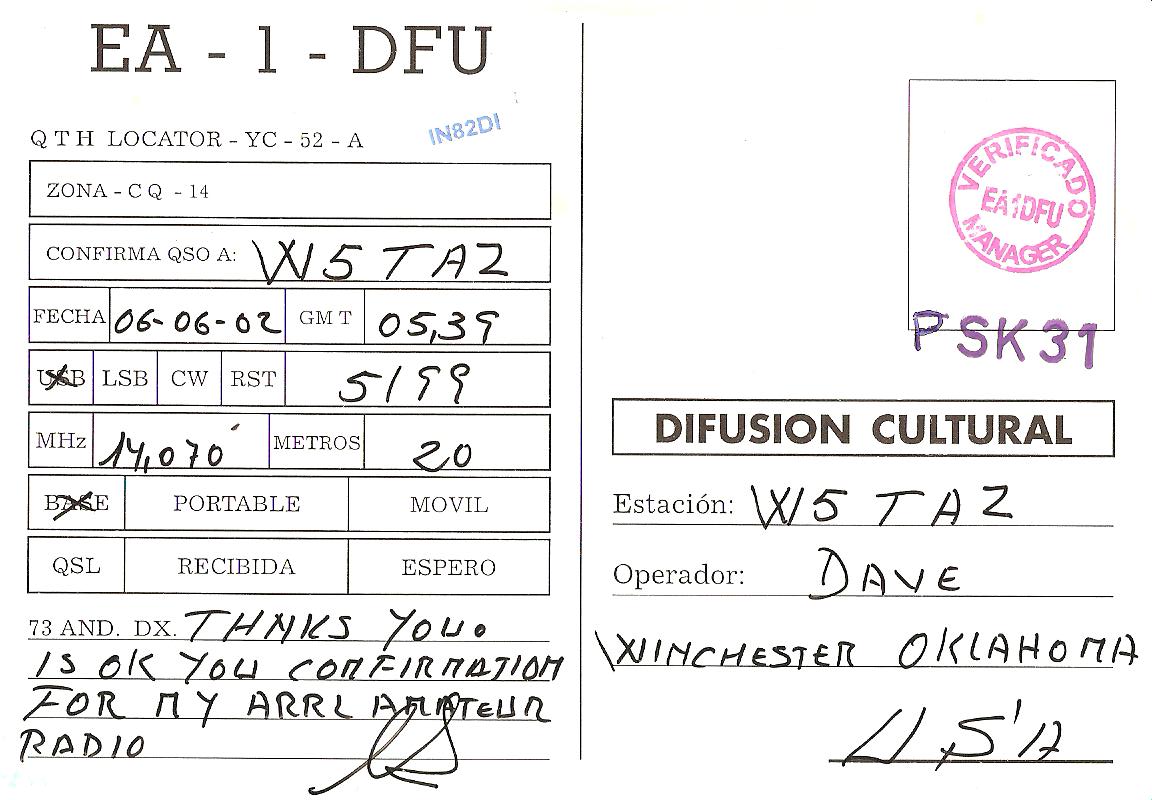 EA - 1 - DFU
QTH LOCATOR - YC - 52 - A
IN82DI
ZONA - CQ - 14
CONFIRMA QSO A: W5TAZ
FECHA 06-06-02 GMT 05,39
USB LSB CW RST 5/99
MHz 14,070 METROS 20
BASE PORTABLE MOVIL
QSL RECIBIDA ESPERO
73 AND. DX. THNKS YOU.
IS OK YOU CONFIRMATION
FOR MY ARRL AMATEUR
RADIO
VERIFICADO
EA1DFU
MANAGER
PSK31
DIFUSION CULTURAL
Estación: W5TAZ
Operador: DAVE
WINCHESTER OKLAHOMA
U S'A